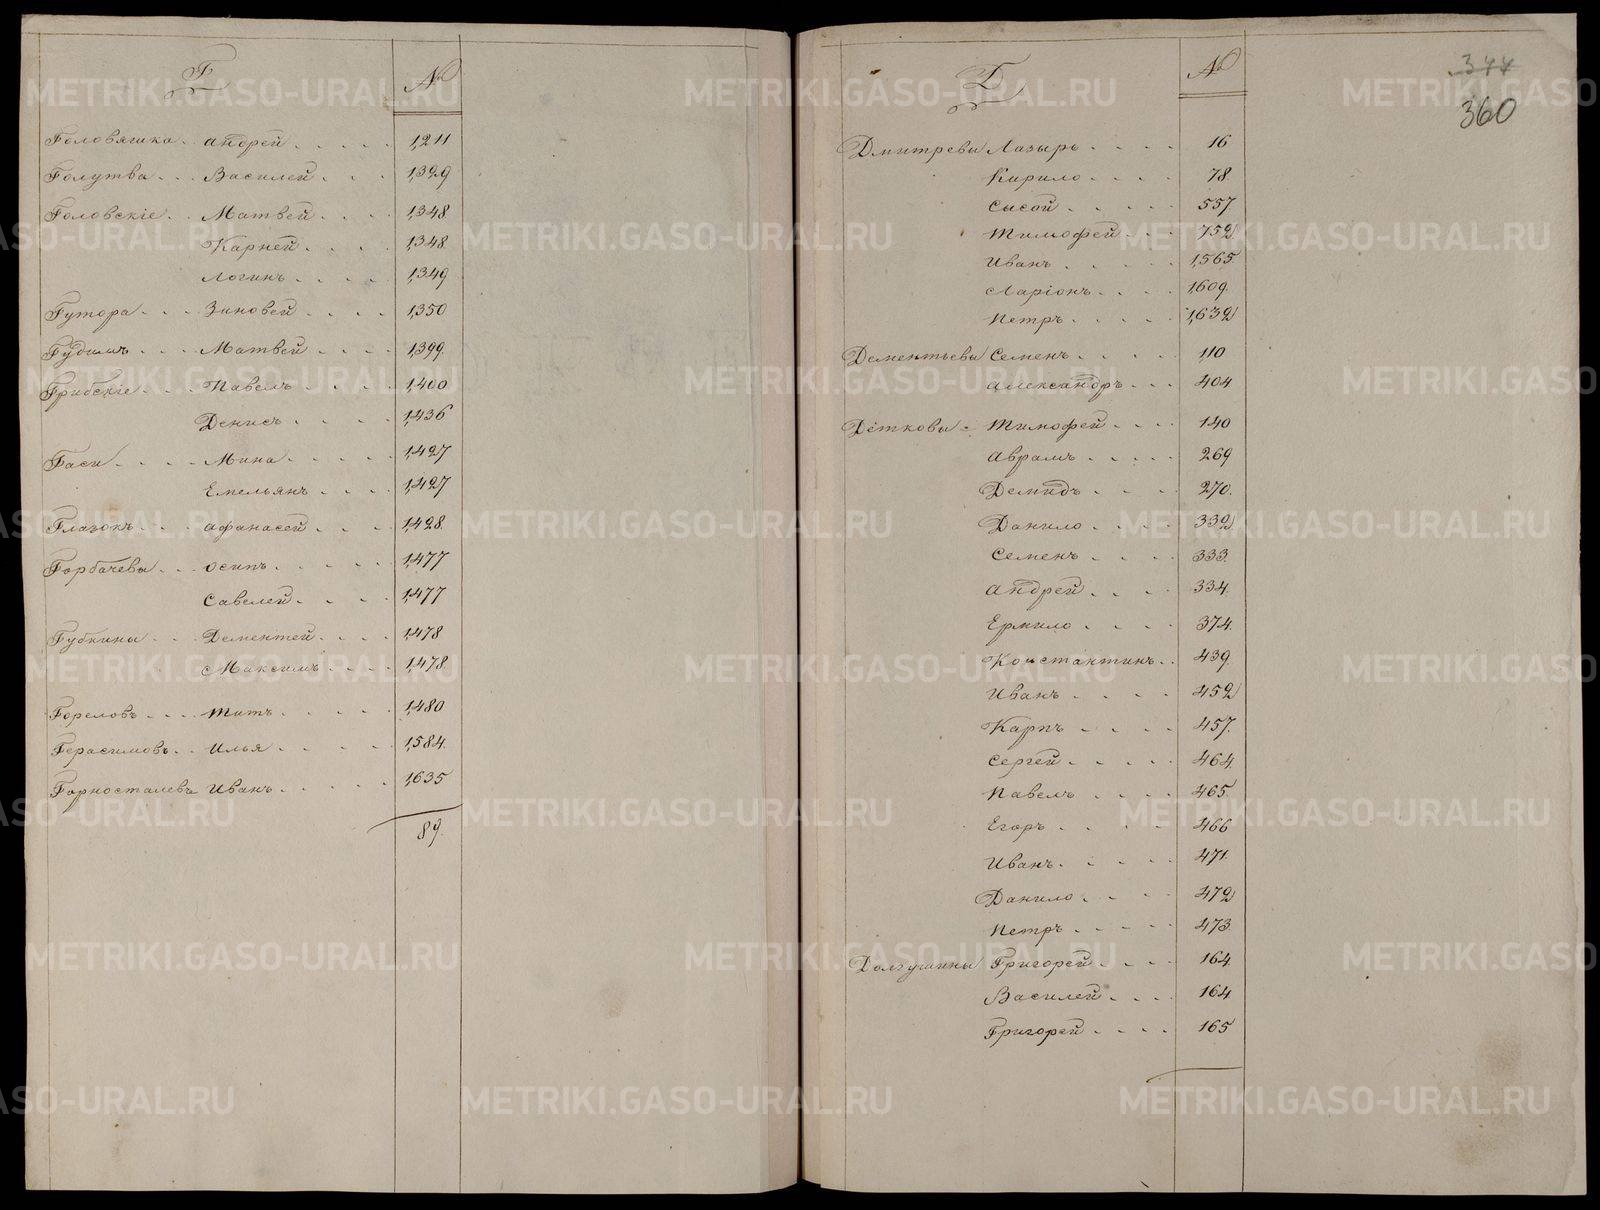 Г №
Головяшка андрей 1,211
Голутва Василей 1,329
Головскіе Матвей 1,348
Карней 1,348
Логинъ 1,349
Гутора Зиновей 1,350
Матвей 1,399
Грибскіе Павелъ 1,400
Денисъ 1,436
Гаси Мина 1,427
Емельянъ 1,427
Глазокъ афанасей 1,428
Горбачевы осипъ 1,477
Савелей 1,477
Губкины Дементей 1,478
Максимъ 1,478
Гореловъ титъ 1,480
Герасимовъ Илья 1,584
Горносталевъ Иванъ 1,635
89.
Д №
344
360
Дмитревы Лазырь 16
Кирило 78.
сысой 557
тимофей 752
Иванъ 1,565.
Ларіонъ 1,609.
Петръ 1,632
Дементьевы Семенъ 110
александръ 404
Дѣтковы тимофей 140
аврамъ 269
Демидъ 270.
Данило 332
Семенъ 333.
андрей 334.
Ермило 374.
Константинъ 439.
Иванъ 452
Карпъ 457.
сергей 464.
Павелъ 465.
Егоръ 466
Иванъ 471.
Данило 472
Петръ 473.
Долгушины Григорей 164.
Василей 164
Григорей 165
METRIKI.GASO-URAL.RU